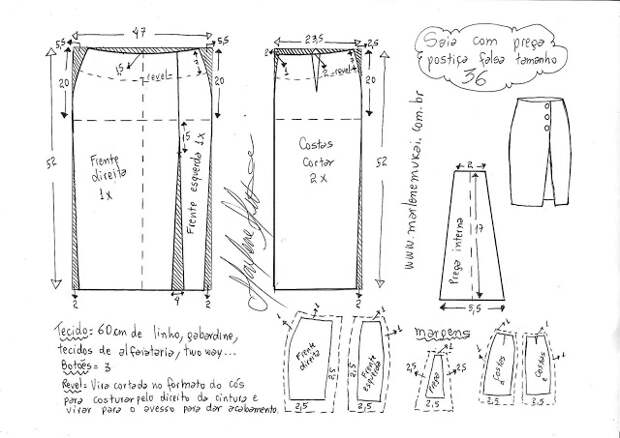 Saia com prega
postiça falsa tamanho
36
47
5,5
5,5
20
20
1,5
revel
3
15
52
Frente
direita
1x
Frente esquerda 1x
2
4
2
23,5
2
2,5
20
1
2
revel
3
Costas
Cortar
2x
52
2
www.marlenemukai.com.br
2
17
Prega interna
5,5
Tecido= 60cm de linho, gabardine,
tecidos de alfaiataria, two way...
Botões= 3
Revel= Vira cortada no formato do cós
para costurar pelo direito da cintura e
virar para o avesso para dar acabamento.
1
1
Frente
direita
2,5
2,5
1
1
Frente
esquerda
2,5
2,5
margens
1
2,5
Prega
2,5
2,5
1
1
Costas
d
2,5
2,5
1
1
Costas
e
2,5
2,5